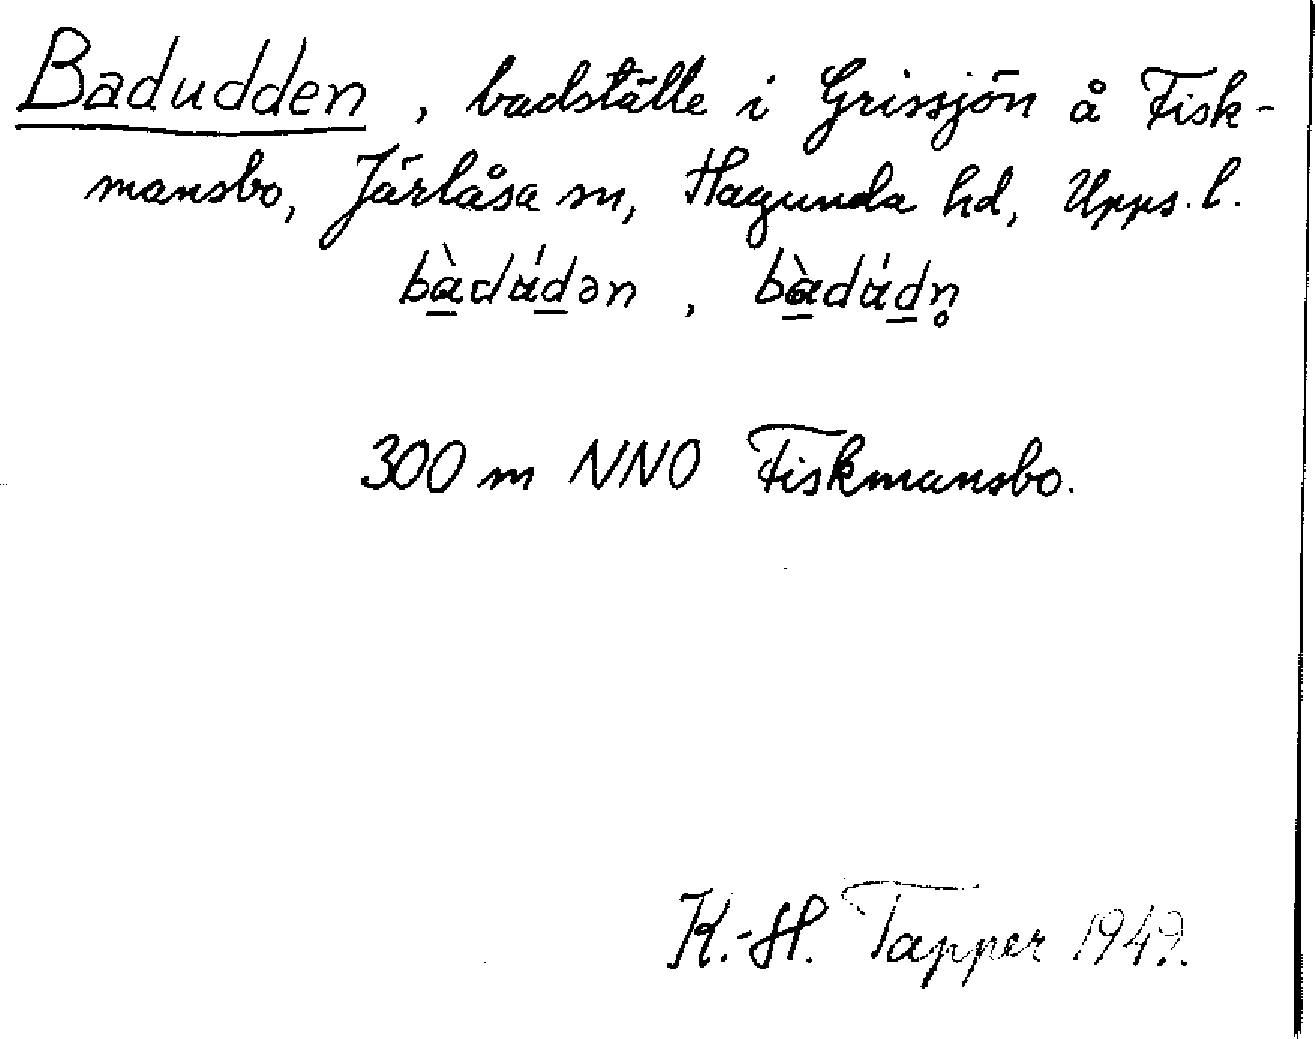 Badudden, badställe i Grissjön å Fisk-
mansbo, Järlåsa sn, Hagunda hd, Upps. l.
bà̱dú̱dən, bà̱dú̱dn̥
300 m NNO Fiskmansbo.
K.-H. Tapper 1949.